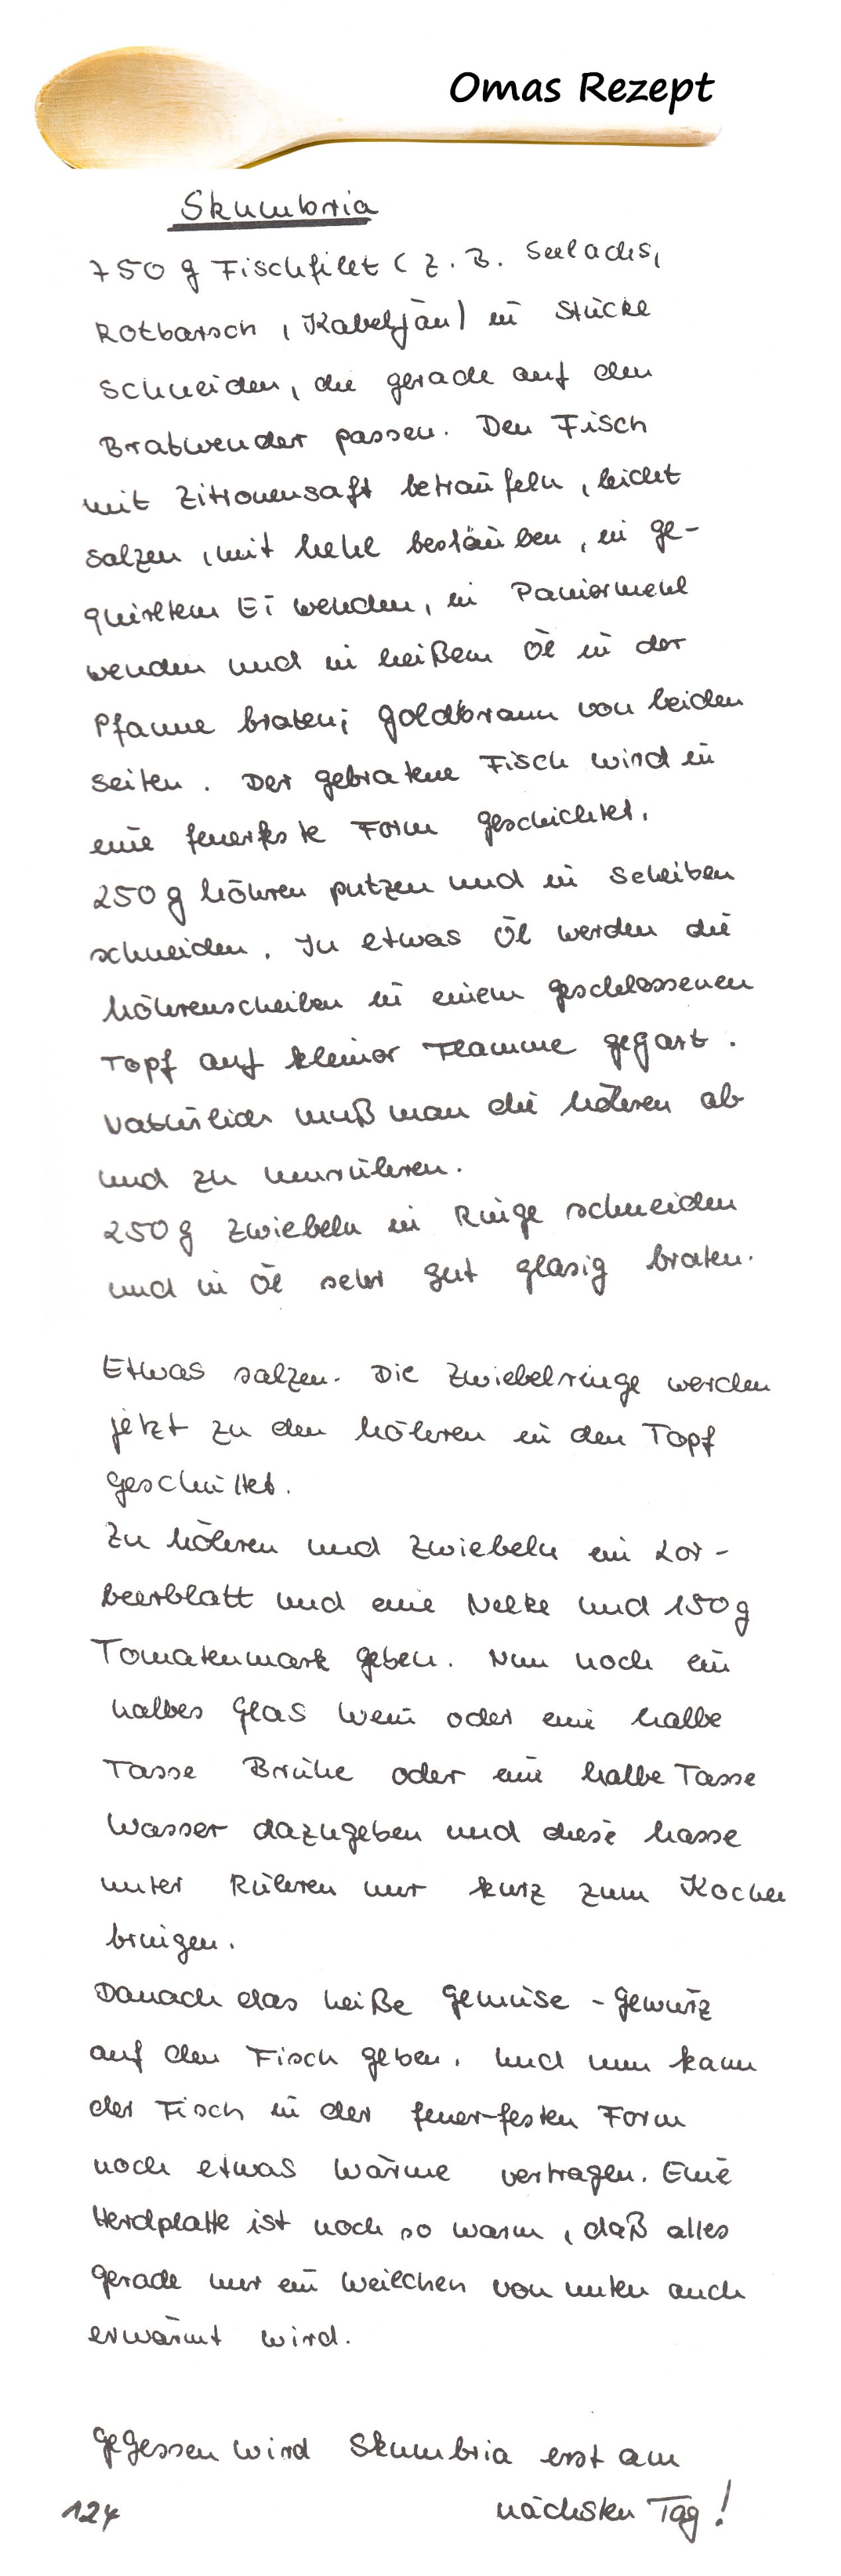 Omas Rezept
Skumbria
750 g Fischfilet (z. B. Seelachs,
Rotbarsch, Kabeljau) in Stücke
schneiden, die gerade auf den
Bratwender passen. Den Fisch
mit Zitronensaft beträufeln, leicht
salzen, mit Mehl bestäuben, in ge-
quirltem Ei wenden, in Paniermehl
wenden und in heißem Öl in der
Pfanne braten; goldbraun von beiden
Seiten. Der gebratene Fisch wird in
eine feuerfeste Form geschichtet.
250 g Möhren putzen und in Scheiben
schneiden. In etwas Öl werden die
Möhrenscheiben in einem geschlossenen
Topf auf kleiner Flamme gegart.
Natürlich muß man die Möhren ab
und zu umrühren.
250 g Zwiebeln in Ringe schneiden
und in Öl sehr gut glasig braten.
Etwas salzen. Die Zwiebelringe werden
jetzt zu den Möhren in den Topf
geschüttet.
Zu Möhren und Zwiebeln ein Lor-
beerblatt und eine Nelke und 150 g
Tomatenmark geben. Nun noch ein
halbes Glas Wein oder eine halbe
Tasse Brühe oder eine halbe Tasse
Wasser dazugeben und diese Masse
unter Rühren nur kurz zum Kochen
bringen.
Danach das heiße Gemüse-Gewürz
auf den Fisch geben. Und nun kann
der Fisch in der feuer-festen Form
noch etwas Wärme vertragen. Eine
Herdplatte ist noch so warm, daß alles
gerade nur ein Weilchen von unten auch
erwärmt wird.
Gegessen wird Skumbria erst am
nächsten Tag!
124